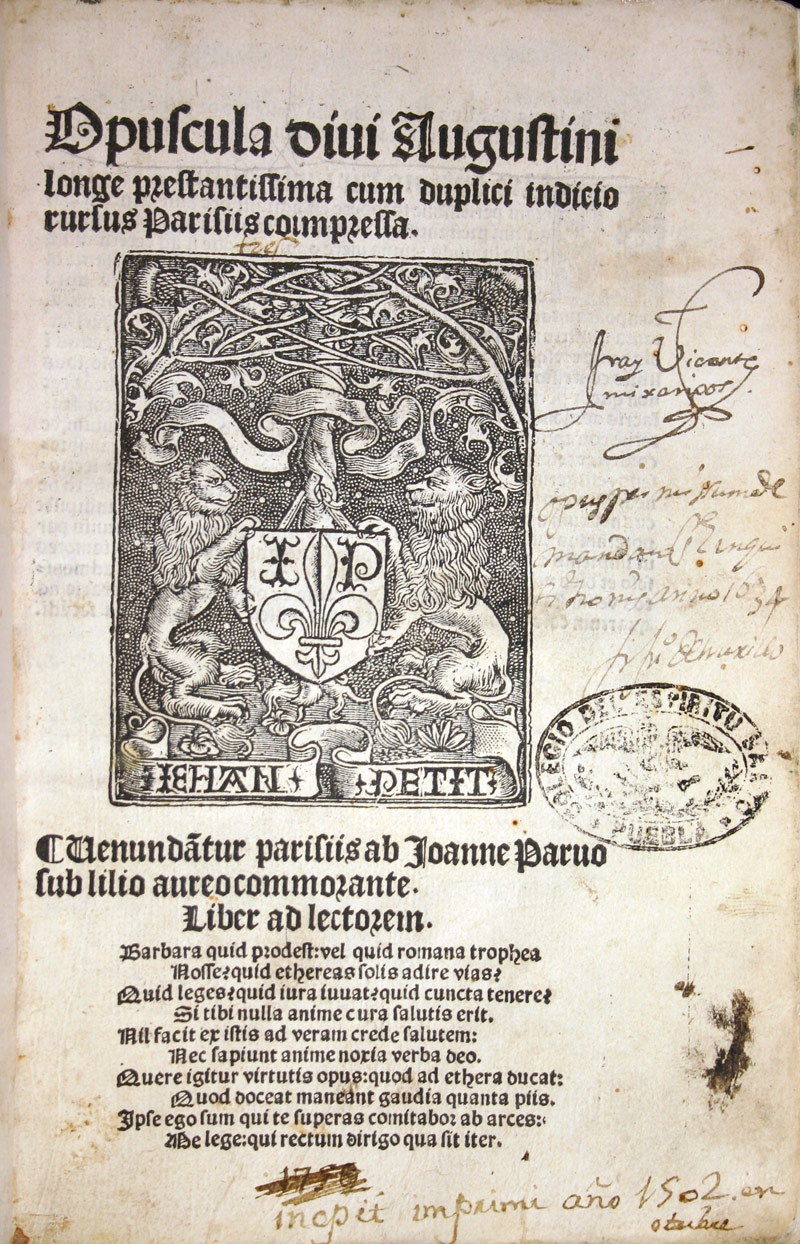 Opuscula diui Augustini
longe prestantissima cum duplici indicio
rursus Parisiis coimpressa.
I P
IEHAN PETIT
¶Uenundãtur parisiis ab Joanne Paruo
sub lilio aureo commorante.
Liber ad lectorem.
Barbara quid prodest: vel quid romana trophea
Nosse? quid ethereas solis adire vias?
Quid leges? quid iura iuuat? quid cuncta tenere?
Si tibi nulla anime cura salutis erit.
Nil facit ex istis ad veram crede salutem:
Nec sapiunt anime noxia verba deo.
Quere igitur virtutis opus: quod ad ethera ducat:
Quod doceat maneant gaudia quanta piis.
Ipse ego sum qui te superas comitabor ab arces:
Me lege: qui rectum dirigo qua sit iter.
fray Vicente
COLEGIO DEL ESPIRITU
PUEBLA
incepit imprimi año 1502. en
otubre